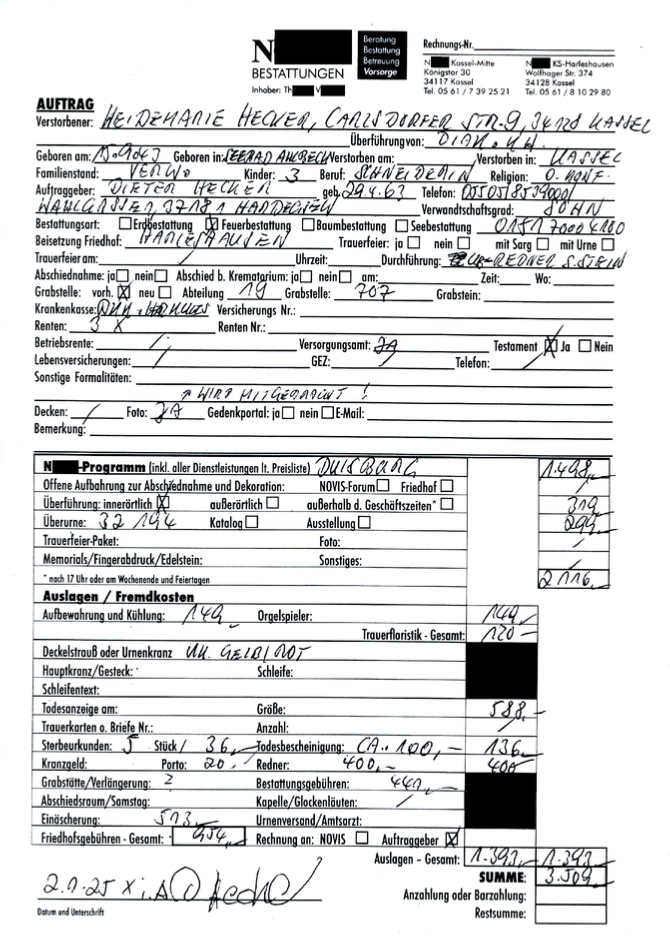 N
BESTATTUNGEN
Inhaber: Th V
Beratung
Bestattung
Betreuung
Vorsorge
Rechnungs-Nr.
N Kassel-Mitte
Königstor 30
34117 Kassel
Tel. 05 61 / 7 39 25 21
N KS-Harleshausen
Wolfhager Str. 374
34128 Kassel
Tel. 05 61 / 8 10 29 80
AUFTRAG
Verstorbener: HEIDEMARIE HECKER, CARLSDORFER STR. 9, 34128 KASSEL
Überführung von: DIAK.
Geboren am: Geboren in: Verstorben am: Verstorben in: KASSEL
Familienstand: VERW. Kinder: 3 Beruf: SCHNEIDERIN Religion: O. KONF.
Auftraggeber: DIETER HECKER geb. 29.4.63 Telefon:
37181 HARDEGSEN Verwandtschaftsgrad: SOHN
Bestattungsart: Erdbestattung Feuerbestattung Baumbestattung Seebestattung
Beisetzung Friedhof: HARLESHAUSEN Trauerfeier: ja nein mit Sarg mit Urne
Trauerfeier am: / Uhrzeit: Durchführung: REDNER S. STEIN
Abschiednahme: ja nein Abschied b. Krematorium: ja nein am: Zeit: Wo:
Grabstelle: vorh. neu Abteilung 19 Grabstelle: 707 Grabstein:
Krankenkasse: Versicherungs Nr.:
Renten: 3 X Renten Nr.:
Betriebsrente: / Versorgungsamt: JA Testament Ja Nein
Lebensversicherungen: / GEZ: / Telefon: /
Sonstige Formalitäten:
↑ WIRD MITGEBRACHT !
Decken: / Foto: JA Gedenkportal: ja nein E-Mail:
Bemerkung:
N -Programm (inkl. aller Dienstleistungen lt. Preisliste) DUISBURG 1.498,-
Offene Aufbahrung zur Abschiednahme und Dekoration: NOVIS-Forum Friedhof /
Überführung: innerörtlich außerörtlich außerhalb d. Geschäftszeiten* 319,-
Überurne: 32 194 Katalog Ausstellung 299,-
Trauerfeier-Paket: Foto: /
Memorials/Fingerabdruck/Edelstein: Sonstiges: /
* nach 17 Uhr oder am Wochenende und Feiertagen 2116,-
Auslagen / Fremdkosten
Aufbewahrung und Kühlung: 149,- Orgelspieler: 149,-
Trauerfloristik - Gesamt: 120,-
Deckelstrauß oder Urnenkranz UK. GELB/ROT
Hauptkranz/Gesteck: Schleife:
Schleifentext:
Todesanzeige am: Größe: 588,-
Trauerkarten o. Briefe Nr.: Anzahl: /
Sterbeurkunden: 5 Stück / 36,- Todesbescheinigung: CA. 100,- 136,-
Kranzgeld Porto: 20,- Redner: 400,- 400
Grabstätte/Verlängerung: ? Bestattungsgebühren: 441,-
Abschiedsraum/Samstag: Kapelle/Glockenläuten: /
Einäscherung: 513,- Urnenversand/Amtsarzt:
Friedhofsgebühren - Gesamt: 954,- Rechnung an: NOVIS Auftraggeber
Auslagen - Gesamt: 1.393,- 1.393,-
SUMME: 3.509,-
Anzahlung oder Barzahlung:
Restsumme:
2.1.25 X i.A. Hecker
Datum und Unterschrift